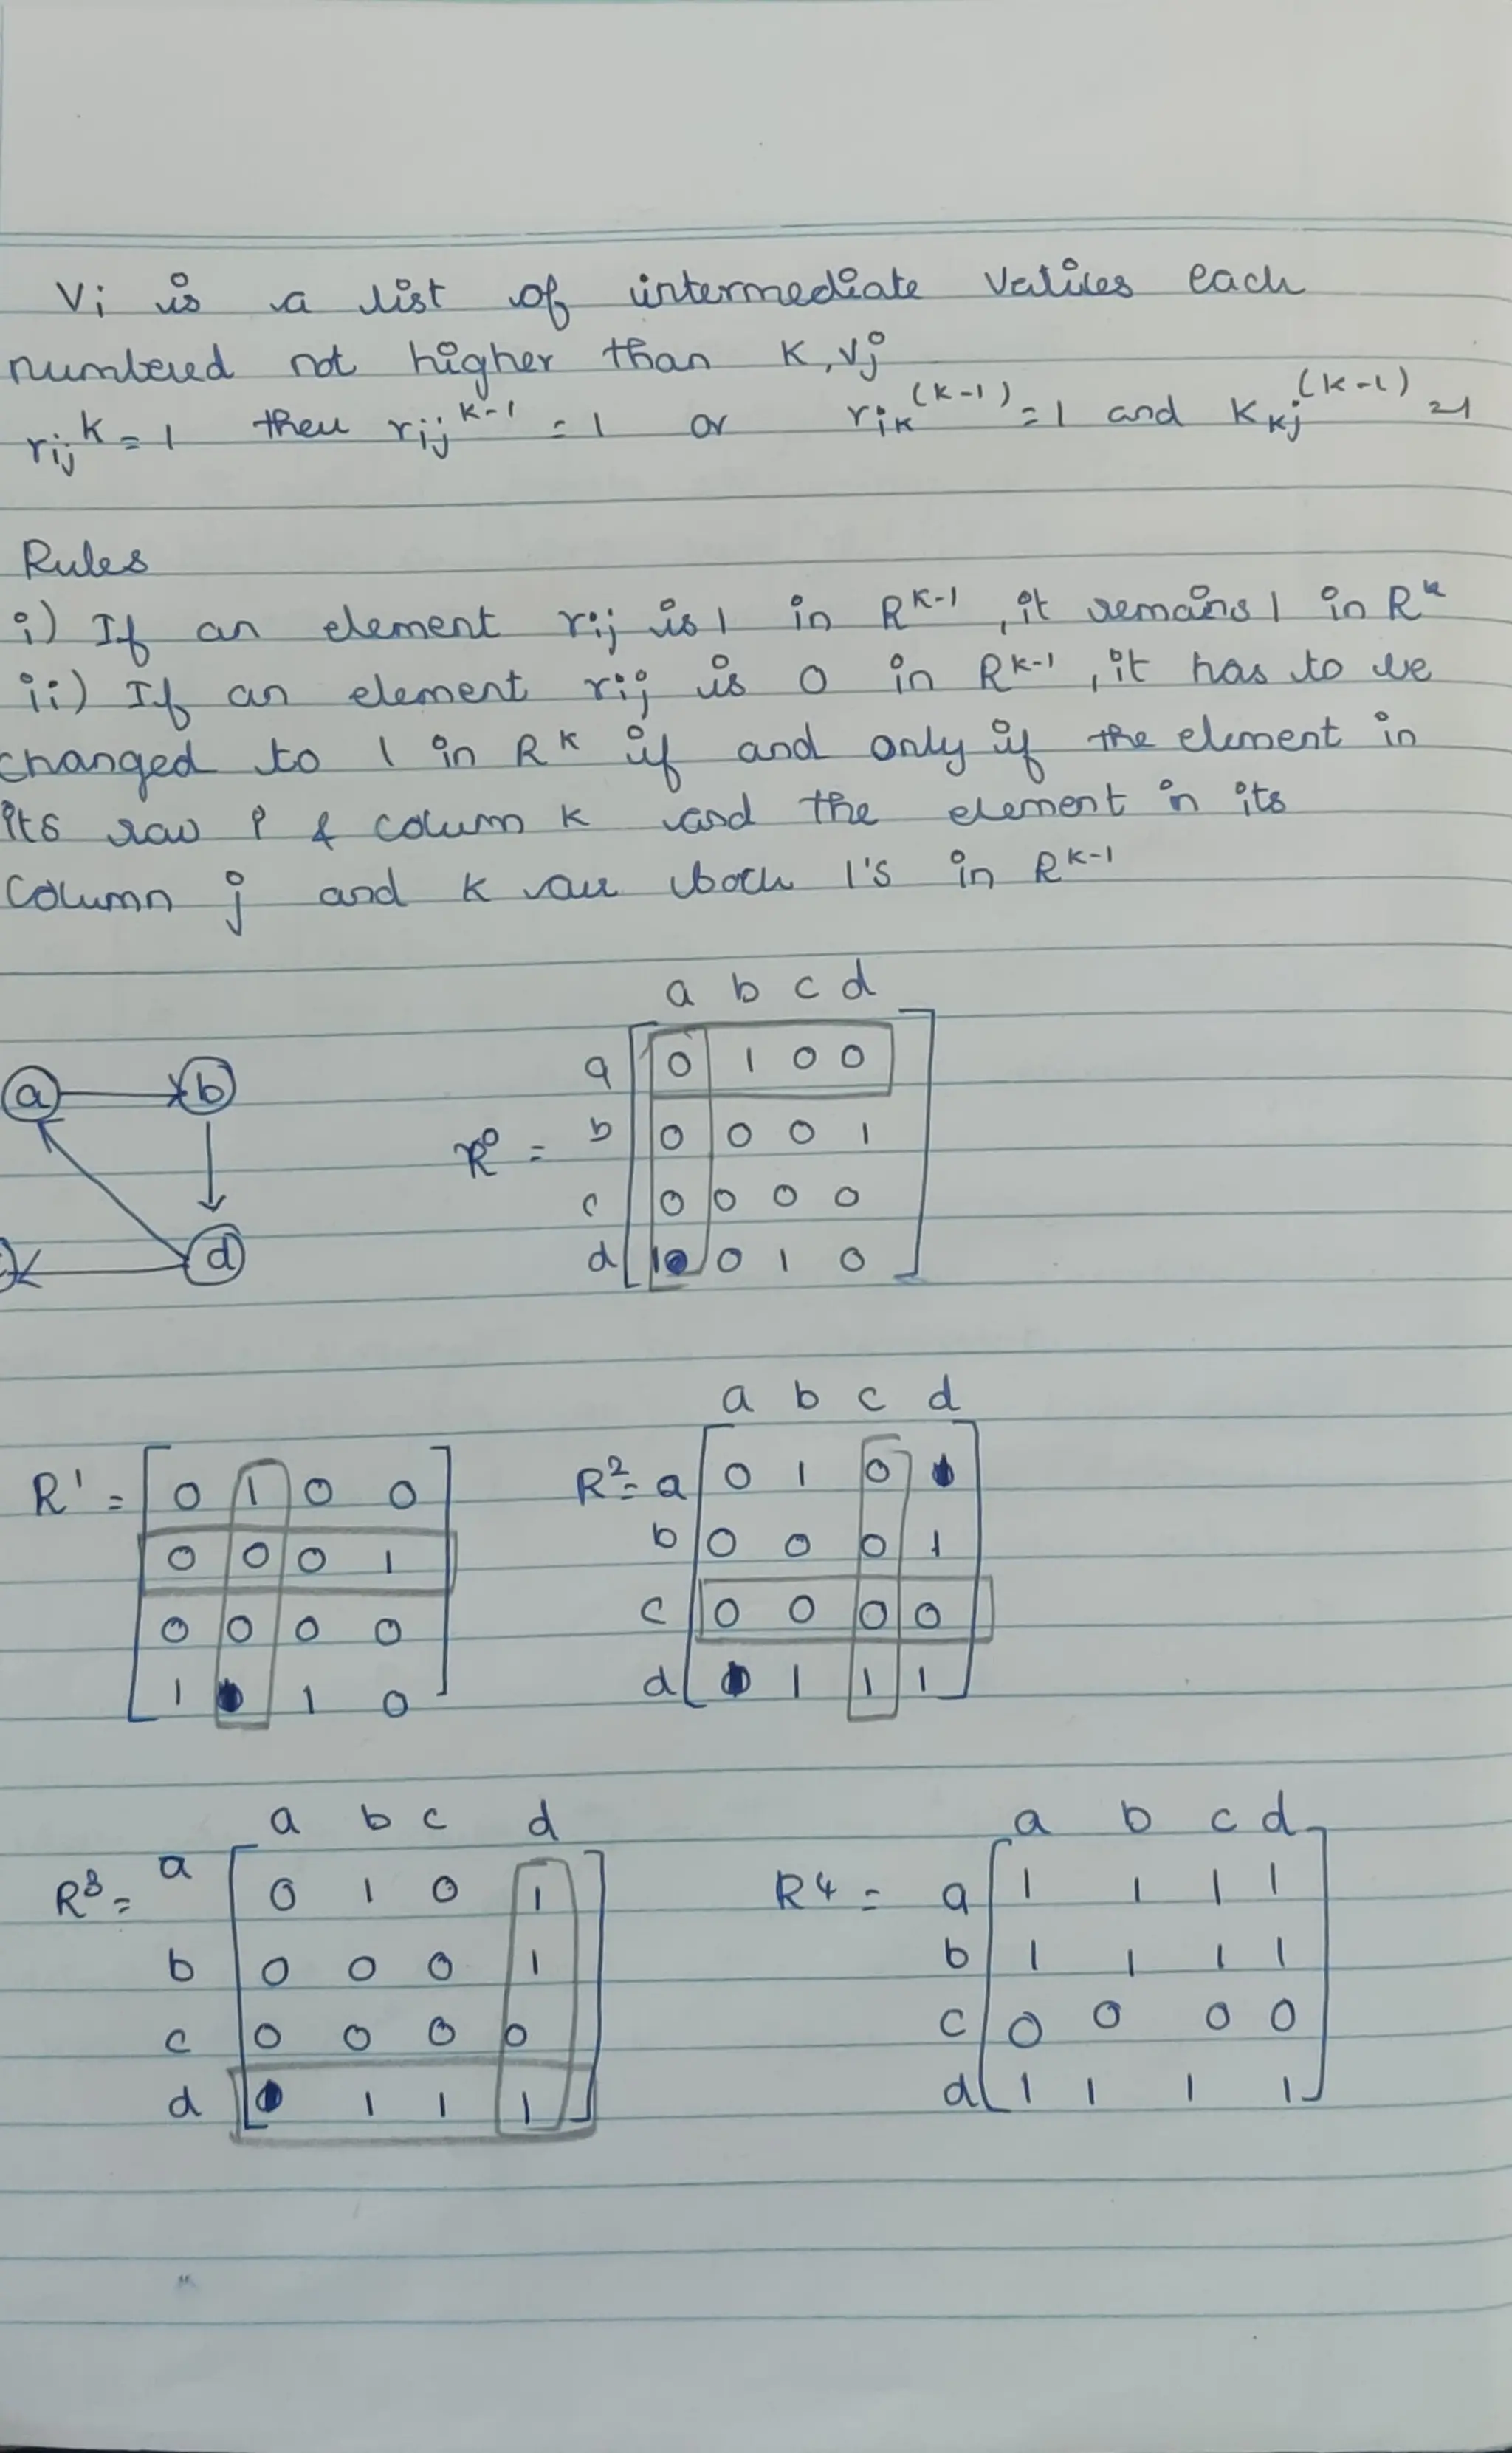 Vi is a list of intermediate values each
numbered not higher than K, Vj
rij^k = 1 then rij^k-1 = 1 or rik^(k-1) = 1 and Kkj^(k-1) = 1
Rules
i) If an element rij is 1 in R^k-1, it remains 1 in R^k
ii) If an element rij is 0 in R^k-1, it has to be
changed to 1 in R^k if and only if the element in
its row i & column k and the element in its
column j and k are both 1's in R^k-1
a b c d
a 0 1 0 0
a b
R^0 = b 0 0 0 1
c 0 0 0 0
d
d 1 0 1 0
a b c d
R^1 = 0 1 0 0
0 0 0 1
0 0 0 0
1 1 0
R^2 = a 0 1 0
b 0 0 0 1
c 0 0 0 0
d 1 1 1
a b c d
R^3 = a 0 1 0 1
b 0 0 0 1
c 0 0 0 0
d 1 1 1
a b c d
R^4 = a 1 1 1 1
b 1 1 1 1
c 0 0 0 0
d 1 1 1 1